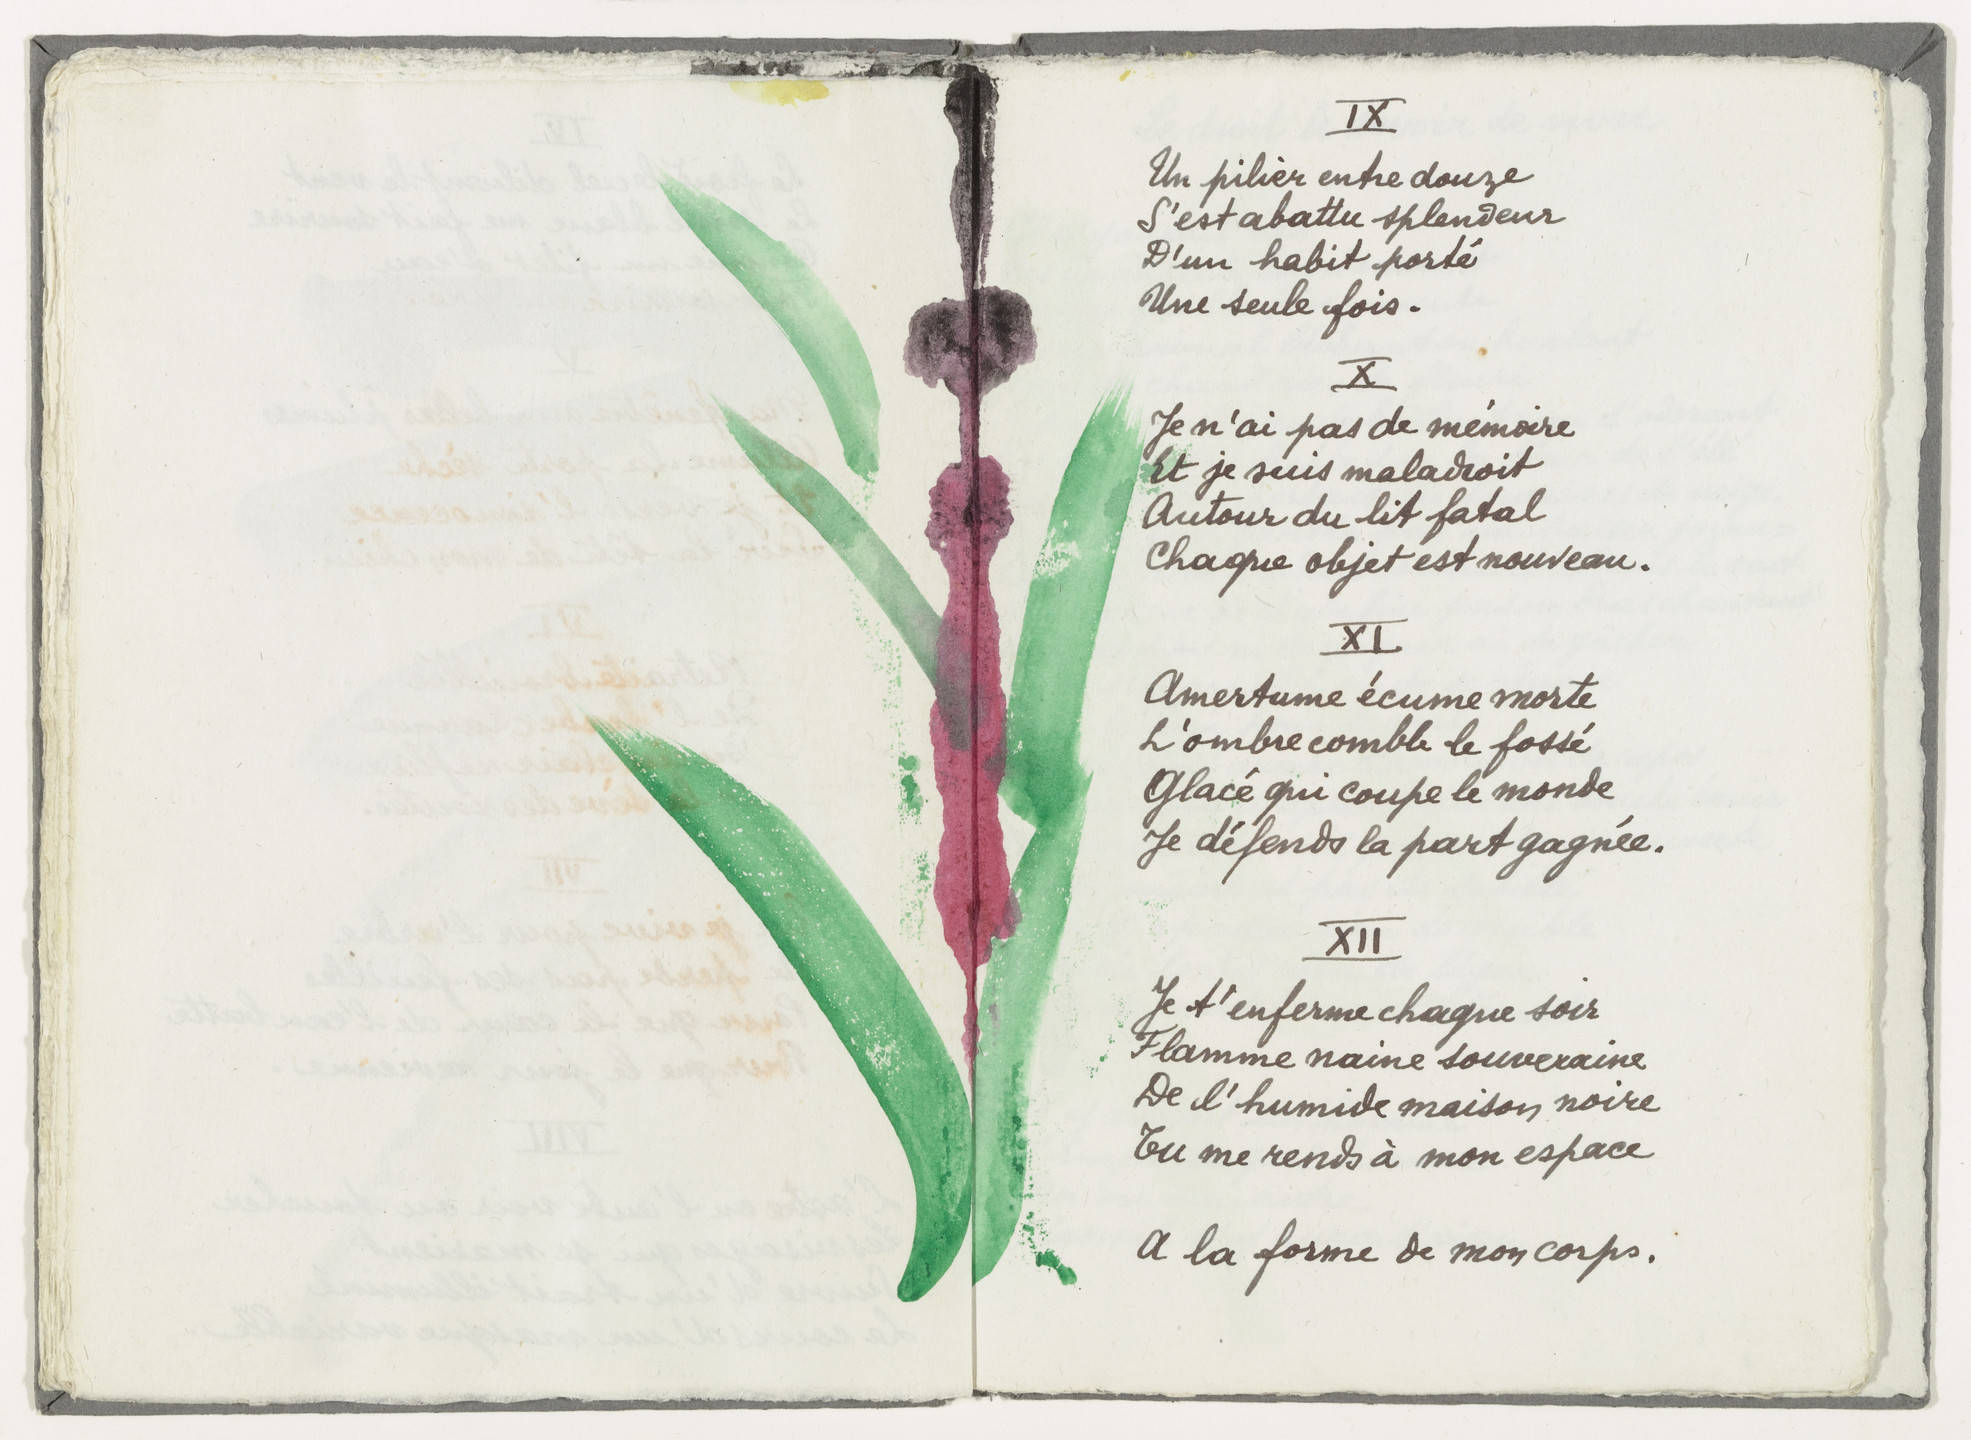 IX
Un pilier entre douze
S'est abattu splendeur
D'un habit porté
Une seule fois.
X
Je n'ai pas de mémoire
Et je suis maladroit
Autour du lit fatal
Chaque objet est nouveau.
XI
Amertume écume morte
L'ombre comble le fossé
Glacé qui coupe le monde
Je défends la part gagnée.
XII
Je t'enferme chaque soir
Flamme naine souveraine
De l'humide maison noire
Tu me rends à mon espace
A la forme de mon corps.